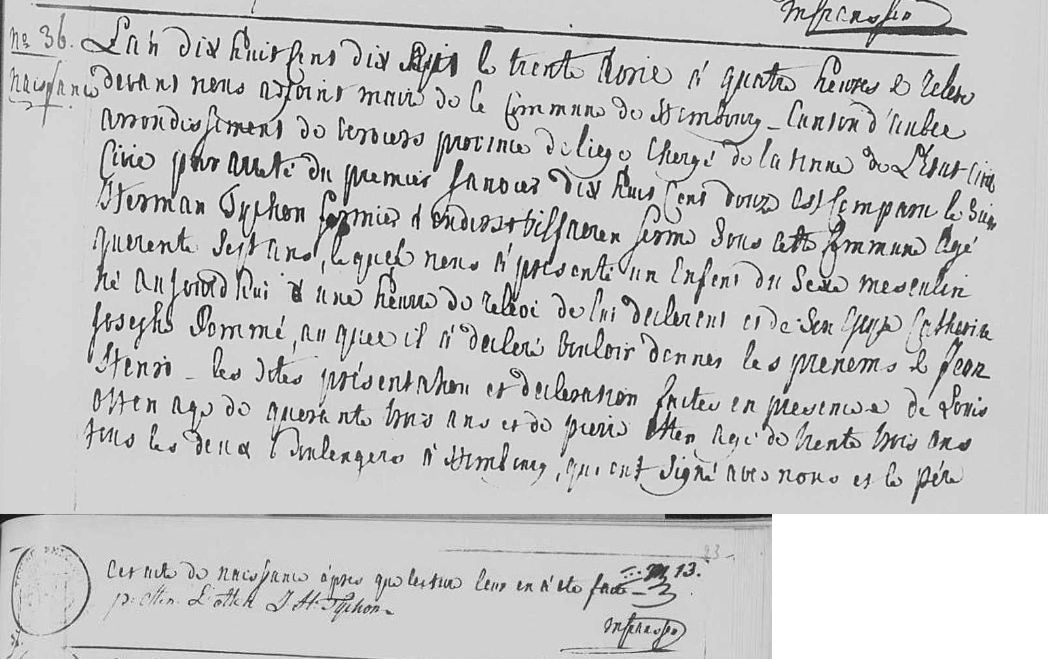 No. 36.
Naissance
L'an dix huit Cent dix Sept le trente Avril à quatre heures de relevé
devant nous adjoint maire de la Commune de Hembourg - Canton d'aubel
arrondissement de Verviers province de liege Chargé de la tenue de L'Etat Civil
Civil par arreté du premier Janvier dix huit Cent douze est Comparu le Sieur
Herman Tychon fermier à ferme Sous cette Commune agé
quarente Sept ans, lequel nous à présenté un Enfent du Sexe mesculin
né aujourd'hui à une heure de relevé de lui declarent et de Son Epouse Catherine
Josephe Lommé, au quel il à declaré vouloir donner les prenoms de Jean
Henri - les dites présentation et declaration faites en presence de Louis
otten age de quarante trois ans et de pierre otten agé de trente trois ans
tous les deux boulengers à Hembourg, qui ont Signé avec nous et le pére
Cet acte de naissance àpres que lecture leur en à été faite
p: otten L otten J H Tychon
23
13.